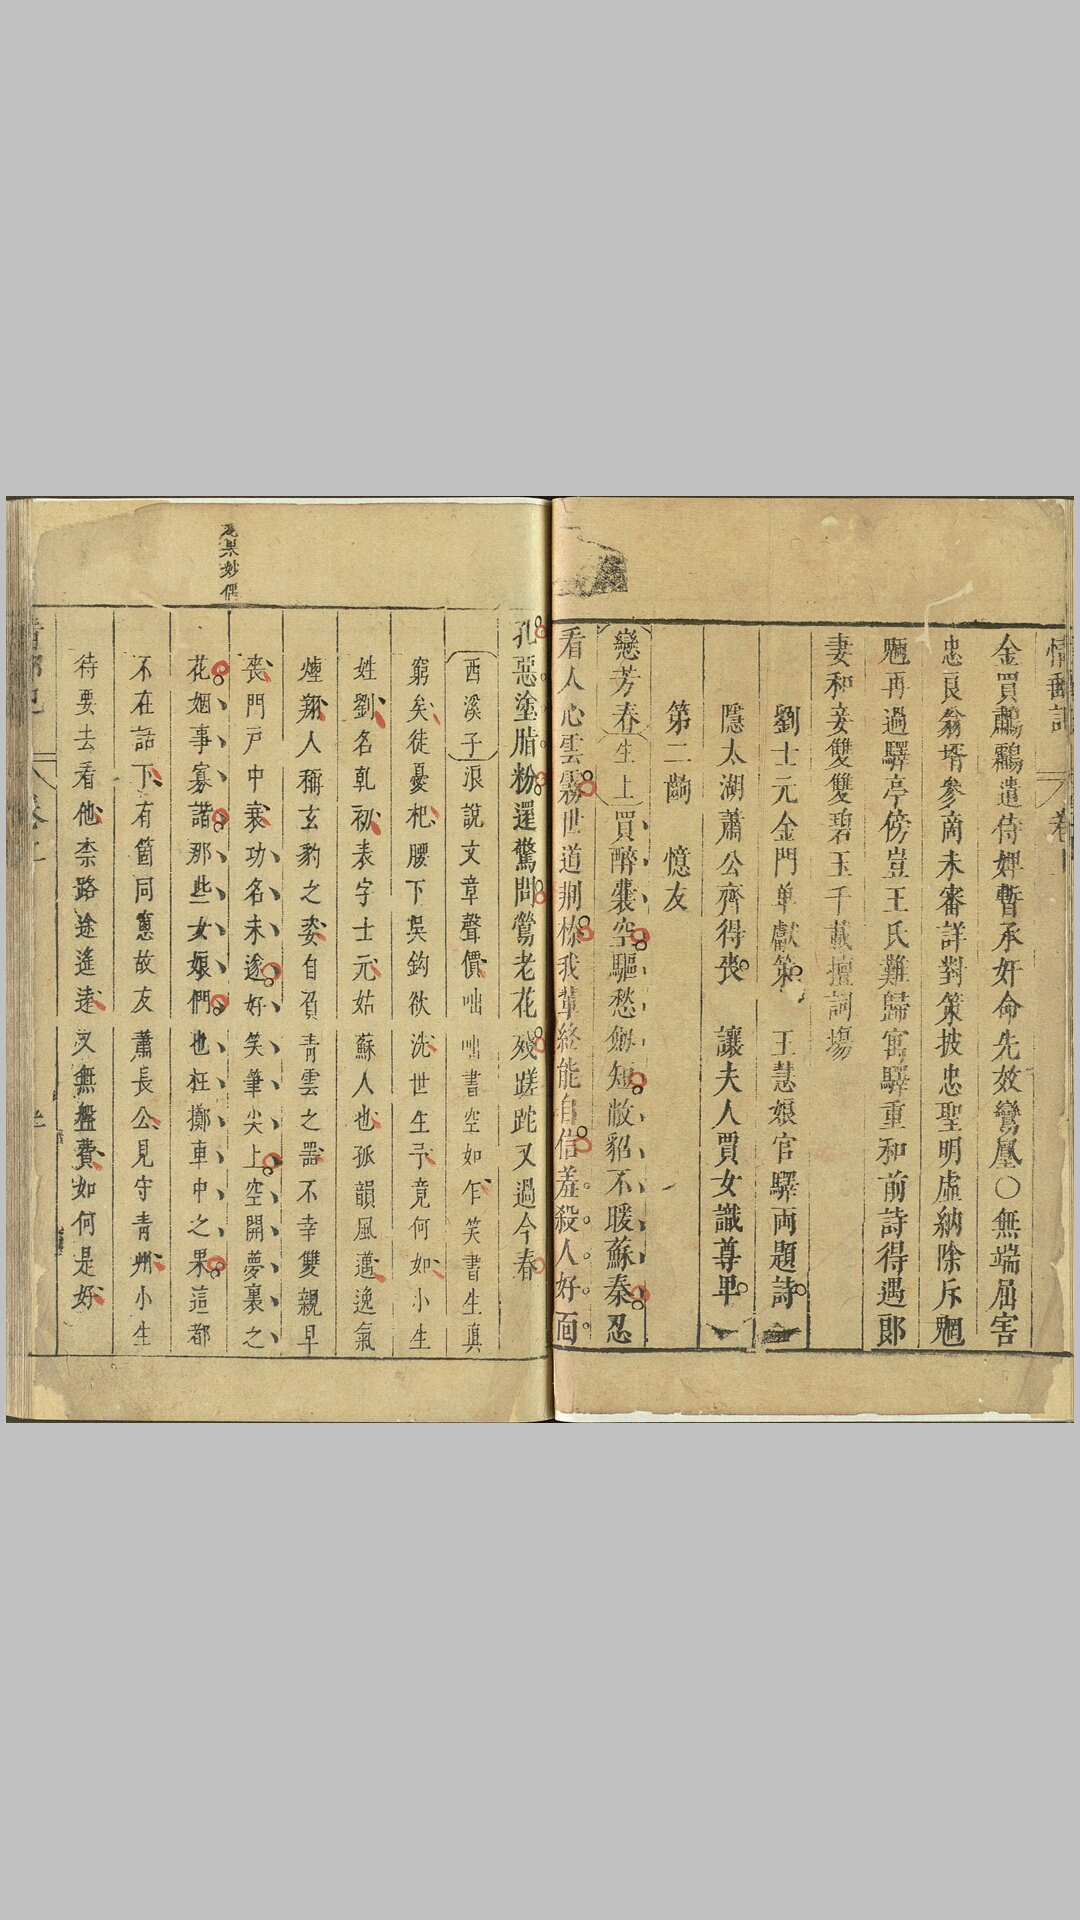 情郵記
金買鸕鷀遣侍婢暫承奸命先效鸞凰○無端屈害
忠良翁壻參商未審詳對策披忠聖明虛納除斥魍
魎再過驛亭傍豈王氏難歸寓驛重和前詩得遇郎
妻和妾雙雙碧玉千載擅詞場
劉士元金門單獻策　王慧娘官驛兩題詩
隱太湖蕭公齊得喪　讓夫人賈女識尊卑
第二齣　憶友
戀芳春生上買醉囊空驅愁劔短敝貂不暖蘇秦忍
看人心雲霧世道荊榛我輩終能自信羞殺人好面
孔惡塗脂粉還驚問鶯老花殘蹉跎又過今春
西溪子浪說文章聲價咄咄書空如乍笑書生眞
窮矣徒憂杞腰下吳鈎欲洗世生予竟何如小生
姓劉名乹初表字士元姑蘇人也孤韻風邁逸氣
煙翔人稱玄豹之姿自負青雲之器不幸雙親早
喪門戸中衰功名未遂好笑筆尖上空開夢裏之
花姻事寡諧那些女娘們也枉擲車中之果這都
不在話下有箇同窻故友蕭長公見守青州小生
待要去看他柰路途遙遠又無盤費如何是好
花果妙偶